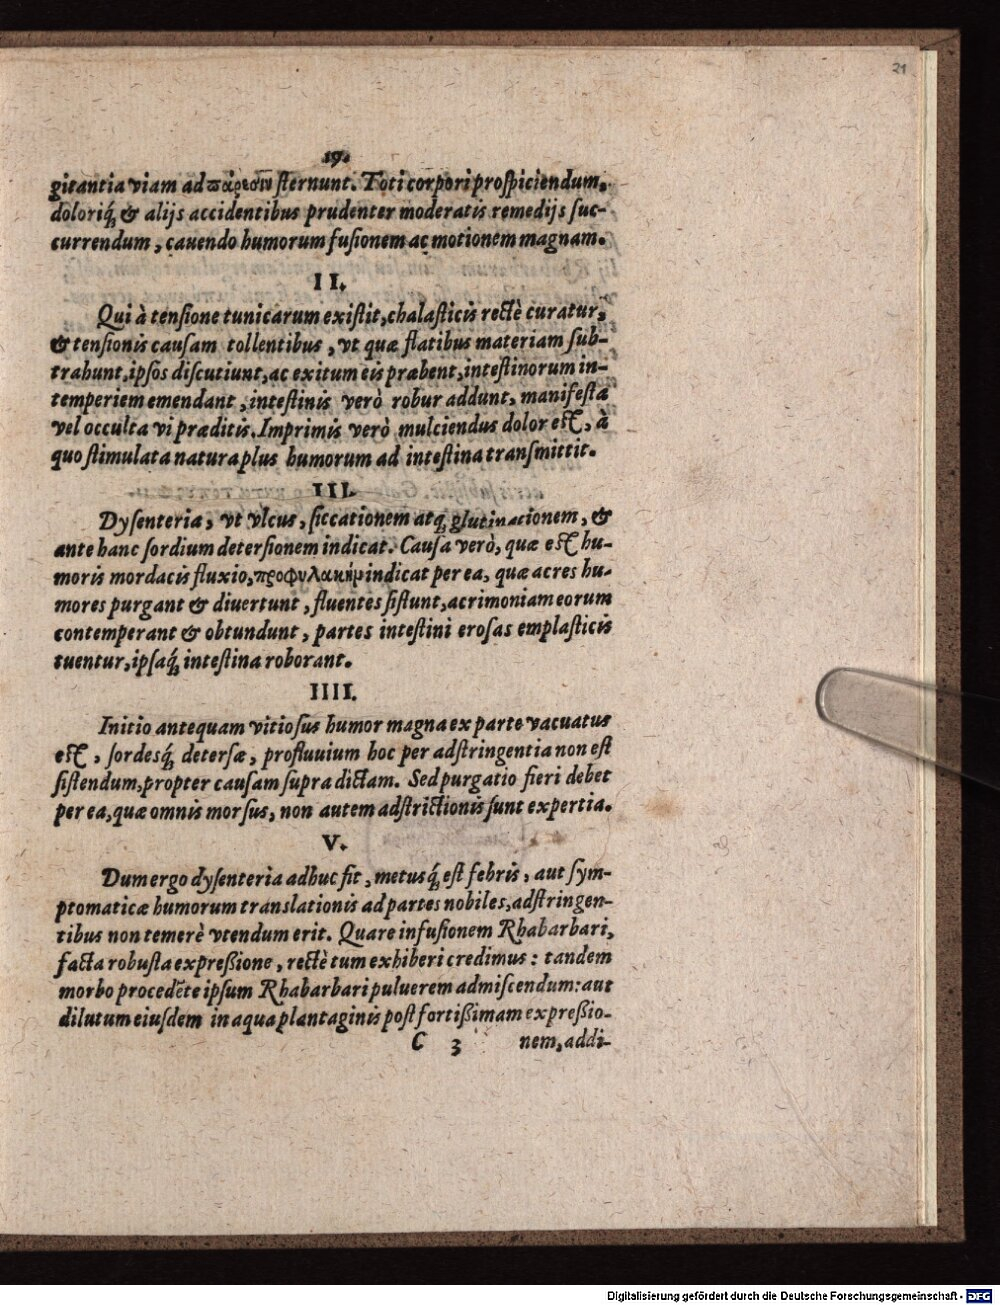 21
19.
gitantia viam ad πάρεσιν sternunt. Toti corpori prospiciendum,
doloriq́; & alijs accidentibus prudenter moderatis remedijs suc-
currendum, cauendo humorum fusionem ac motionem magnam.
II.
Qui à tensione tunicarum existit, chalasticis rectè curatur,
& tensionis causam tollentibus, vt quæ flatibus materiam sub-
trahunt, ipsos discutiunt, ac exitum eis præbent, intestinorum in-
temperiem emendant, intestinis verò robur addunt, manifesta
vel occulta vi præditis. Imprimis verò mulciendus dolor est, à
quo stimulata natura plus humorum ad intestina transmittit.
III.
Dysenteria, vt vlcus, siccationem atq; glutinationem, &
ante hanc sordium detersionem indicat. Causa verò, quæ est hu-
moris mordacis fluxio, προφυλακὴν indicat per ea, quæ acres hu-
mores purgant & diuertunt, fluentes sistunt, acrimoniam eorum
contemperant & obtundunt, partes intestini erosas emplasticis
tuentur, ipsaq́; intestina roborant.
IIII.
Initio antequam vitiosus humor magna ex parte vacuatus
est, sordesq́; detersæ, profluuium hoc per adstringentia non est
sistendum, propter causam supra dictam. Sed purgatio fieri debet
per ea, quæ omnis morsus, non autem adstrictionis sunt expertia.
V.
Dum ergo dysenteria adhuc fit, metusq́; est febris, aut sym-
ptomaticæ humorum translationis ad partes nobiles, adstringen-
tibus non temerè vtendum erit. Quare infusionem Rhabarbari,
facta robusta expreßione, rectè tum exhiberi credimus: tandem
morbo procedēte ipsum Rhabarbari puluerem admiscendum: aut
dilutum eiusdem in aqua plantaginis post fortißimam expreßio-
C 3 nem, addi-
Digitalisierung gefördert durch die Deutsche Forschungsgemeinschaft - DFG